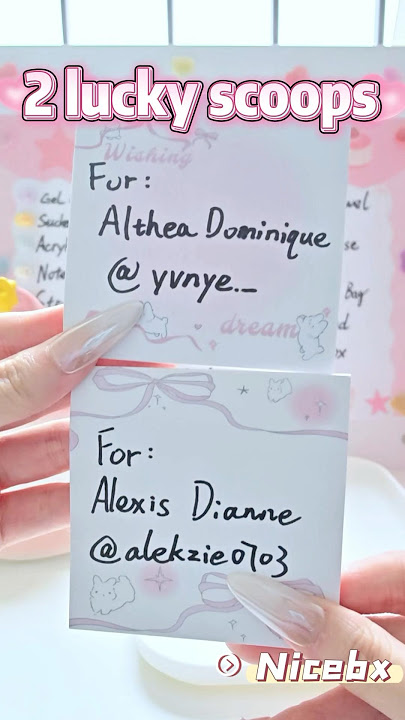 2 lucky scoops
Wishing
For:
Althea Dominique
@ yvnye._
dream
For:
Alexis Dianne
@alekzie0703
Gel
Acryl
Note
Bag
Nicebx